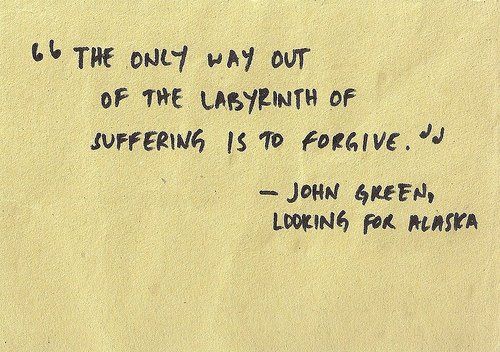 “THE ONLY WAY OUT
OF THE LABYRINTH OF
SUFFERING IS TO FORGIVE.”
— JOHN GREEN,
LOOKING FOR ALASKA